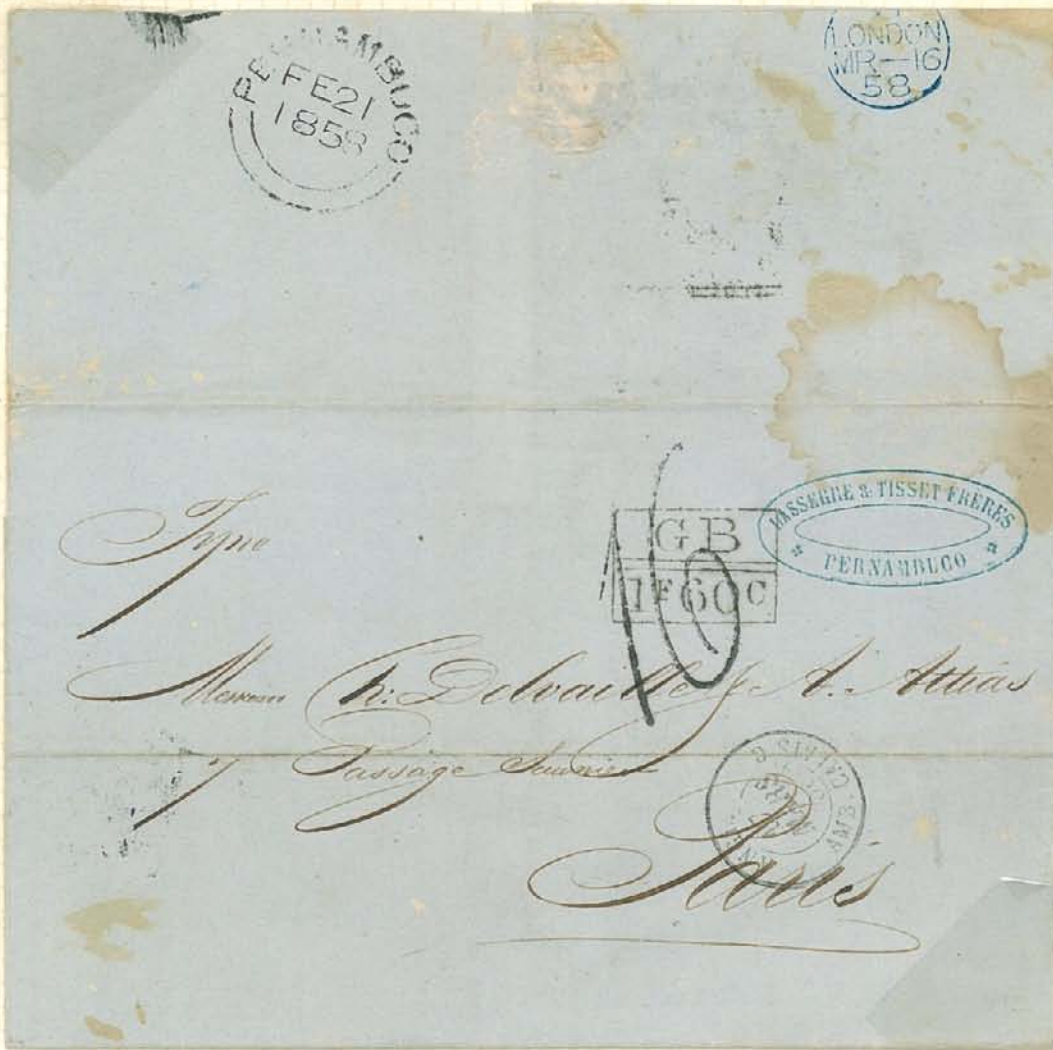 PERNAMBUCO
FE21
1858
LONDON
MR-16
58
LASSERRE & TISSET FRERES
PERNAMBUCO
GB
1F60C
16
Messieurs Ch: Delvaille & A. Attias
7 Passage Saunier
Paris
AMB. CALAIS G